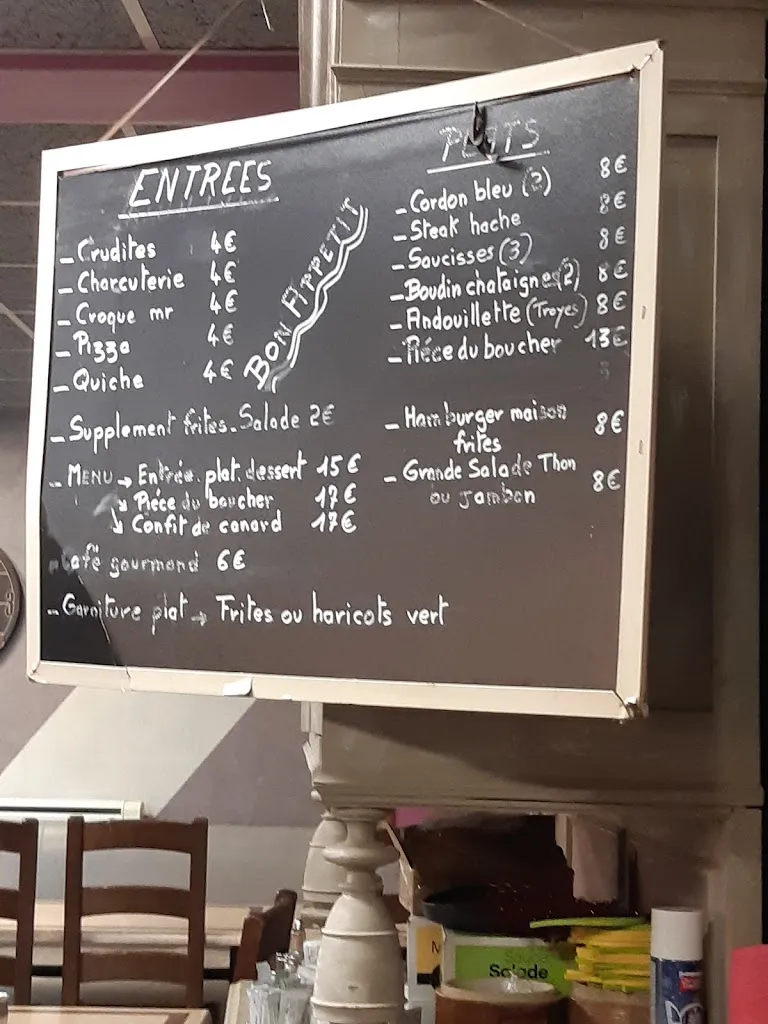 ENTREES
- Crudites 4€
- Charcuterie 4€
- Croque mr 4€
- Pizza 4€
- Quiche 4€
BON APPETIT
- Supplement frites. Salade 2€
- MENU → Entrée. plat. dessert 15€
↘ Piéce du boucher 17€
↘ Confit de canard 17€
- Café gourmand 6€
- Garniture plat → Frites ou haricots vert
PLATS
- Cordon bleu (2) 8€
- Steak hache 8€
- Saucisses (3) 8€
- Boudin chataignes (2) 8€
- Andouillette (Troyes) 8€
- Piéce du boucher 13€
- Hamburger maison 8€
frites
- Grande Salade Thon 8€
ou Jambon
Salade